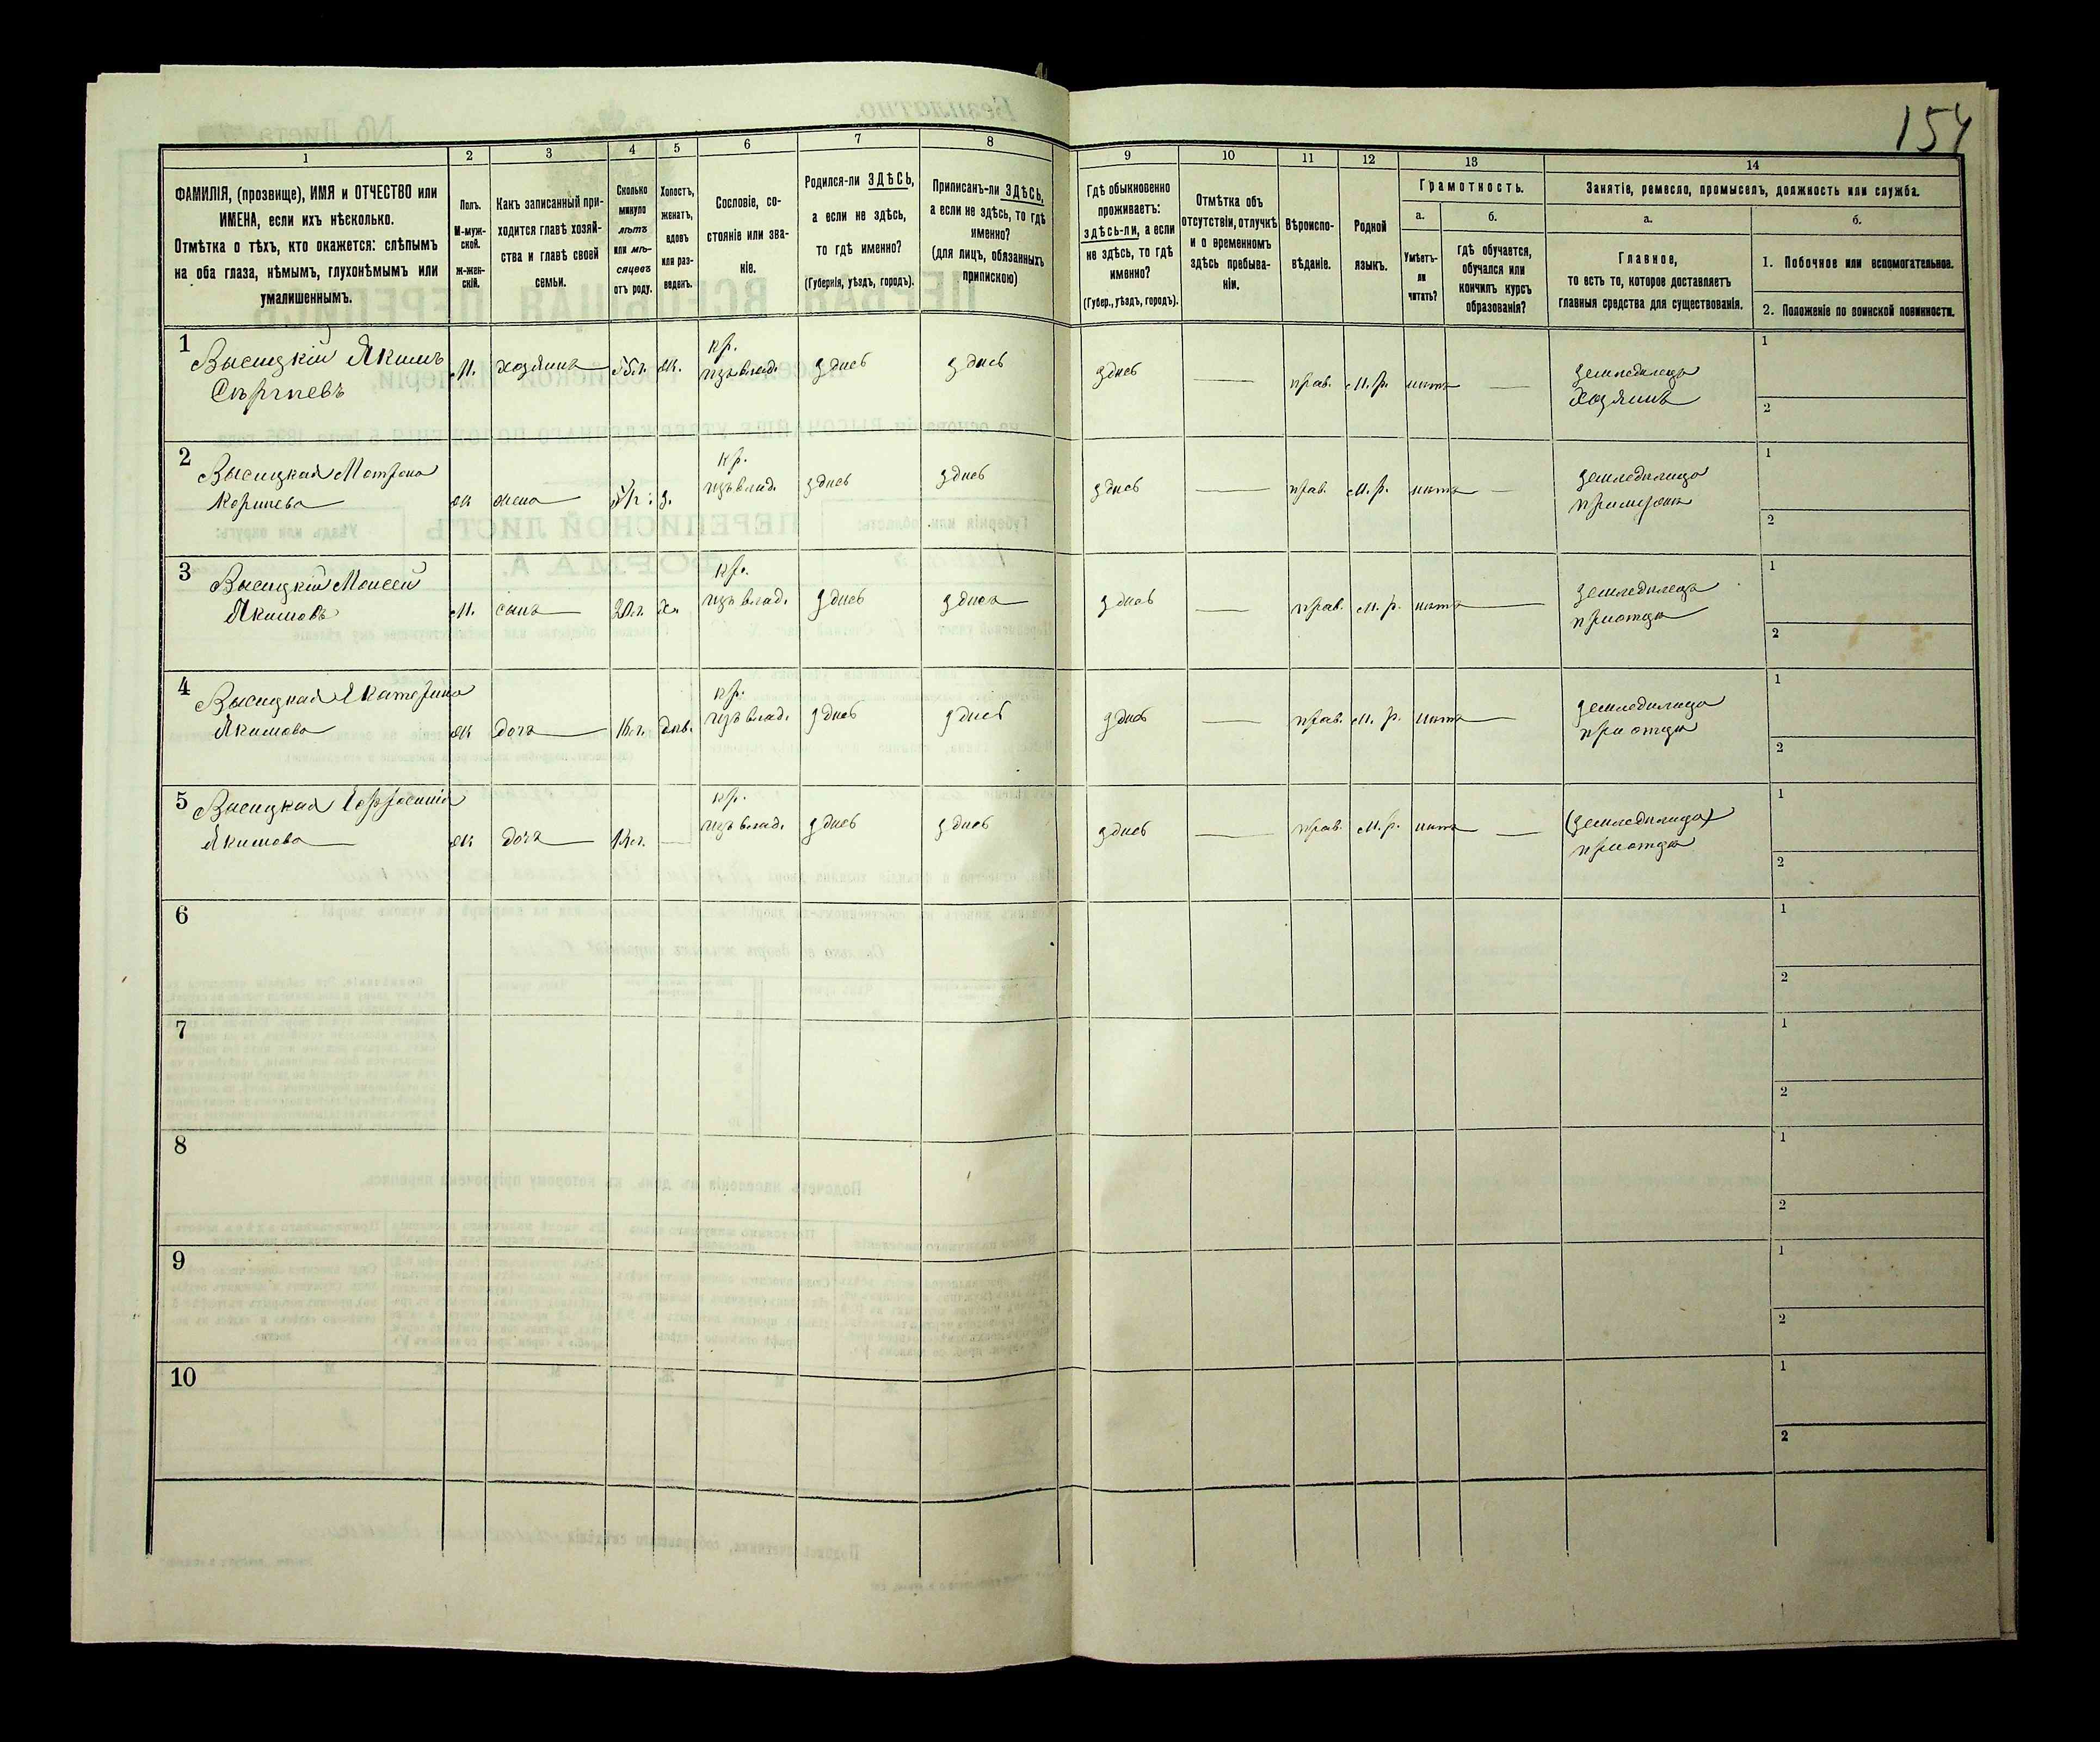 154
1 2 3 4 5 6 7 8 9 10 11 12 13 14
ФАМИЛІЯ, (прозвище), ИМЯ и ОТЧЕСТВО или
ИМЕНА, если ихъ нѣсколько.
Отмѣтка о тѣхъ, кто окажется: слѣпымъ
на оба глаза, нѣмымъ, глухонѣмымъ или
умалишеннымъ.
Полъ.
М-муж-
ской.
ж-жен-
скій.
Какъ записанный при-
ходится главѣ хозяй-
ства и главѣ своей
семьи.
Сколько
минуло
лѣтъ
или мѣ-
сяцевъ
отъ роду.
Холостъ,
женатъ,
вдовъ
или раз-
веденъ.
Сословіе, со-
стояніе или зва-
ніе.
Родился-ли ЗДѢСЬ,
а если не здѣсь,
то гдѣ именно?
(Губернія, уѣздъ, городъ).
Приписанъ-ли ЗДѢСЬ,
а если не здѣсь, то гдѣ
именно?
(для лицъ, обязанныхъ
припискою)
Гдѣ обыкновенно
проживаетъ:
здѣсь-ли, а если
не здѣсь, то гдѣ
именно?
(Губер., уѣздъ, городъ).
Отмѣтка объ
отсутствіи, отлучкѣ
и о временномъ
здѣсь пребыва-
ніи.
Вѣроиспо-
вѣданіе.
Родной
языкъ.
Грамотность.
а. б.
Умѣетъ-
ли
читать?
гдѣ обучается,
обучался или
кончилъ курсъ
образованія?
Занятіе, ремесло, промыселъ, должность или служба.
а. б.
Главное,
то есть то, которое доставляетъ
главныя средства для существованія.
1. Побочное или вспомогательное.
2. Положеніе по воинской повинности.
1 Высицкій Якимъ м. хозяинъ 55 л. ж. кр. изъ влад. здесь здесь здесь — прав. м. р. нетъ — земледелецъ 1
Сергеевъ хозяинъ 2
2 Высицкая Матрона ж жена кр. изъ влад. здесь здесь здесь — прав. м. р. нетъ — 1
2
3 Высицкій Моисей м. сынъ 20 л. х. кр. изъ влад. здесь здесь здесь — прав. м. р. нетъ — земледелецъ 1
Якимовъ при отце 2
4 Высицкая Екатерина ж дочь 16 л. дев. кр. изъ влад. здесь здесь здесь — прав. м. р. нетъ — 1
Якимова при отце 2
5 Высицкая ж дочь — кр. изъ влад. здесь здесь здесь — прав. м. р. нетъ — 1
Якимова при отце 2
6 1
2
7 1
2
8 1
2
9 1
2
10 1
2